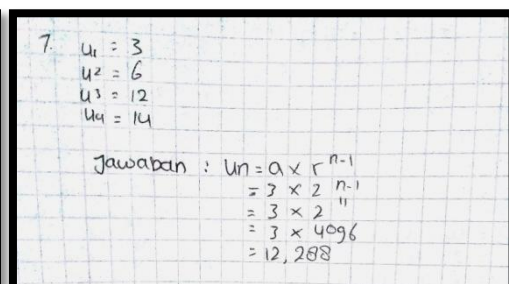 7. U1 = 3
U2 = 6
U3 = 12
U4 = 14
Jawaban : Un = a x r^n-1
= 3 x 2^n-1
= 3 x 2^11
= 3 x 4096
= 12,288